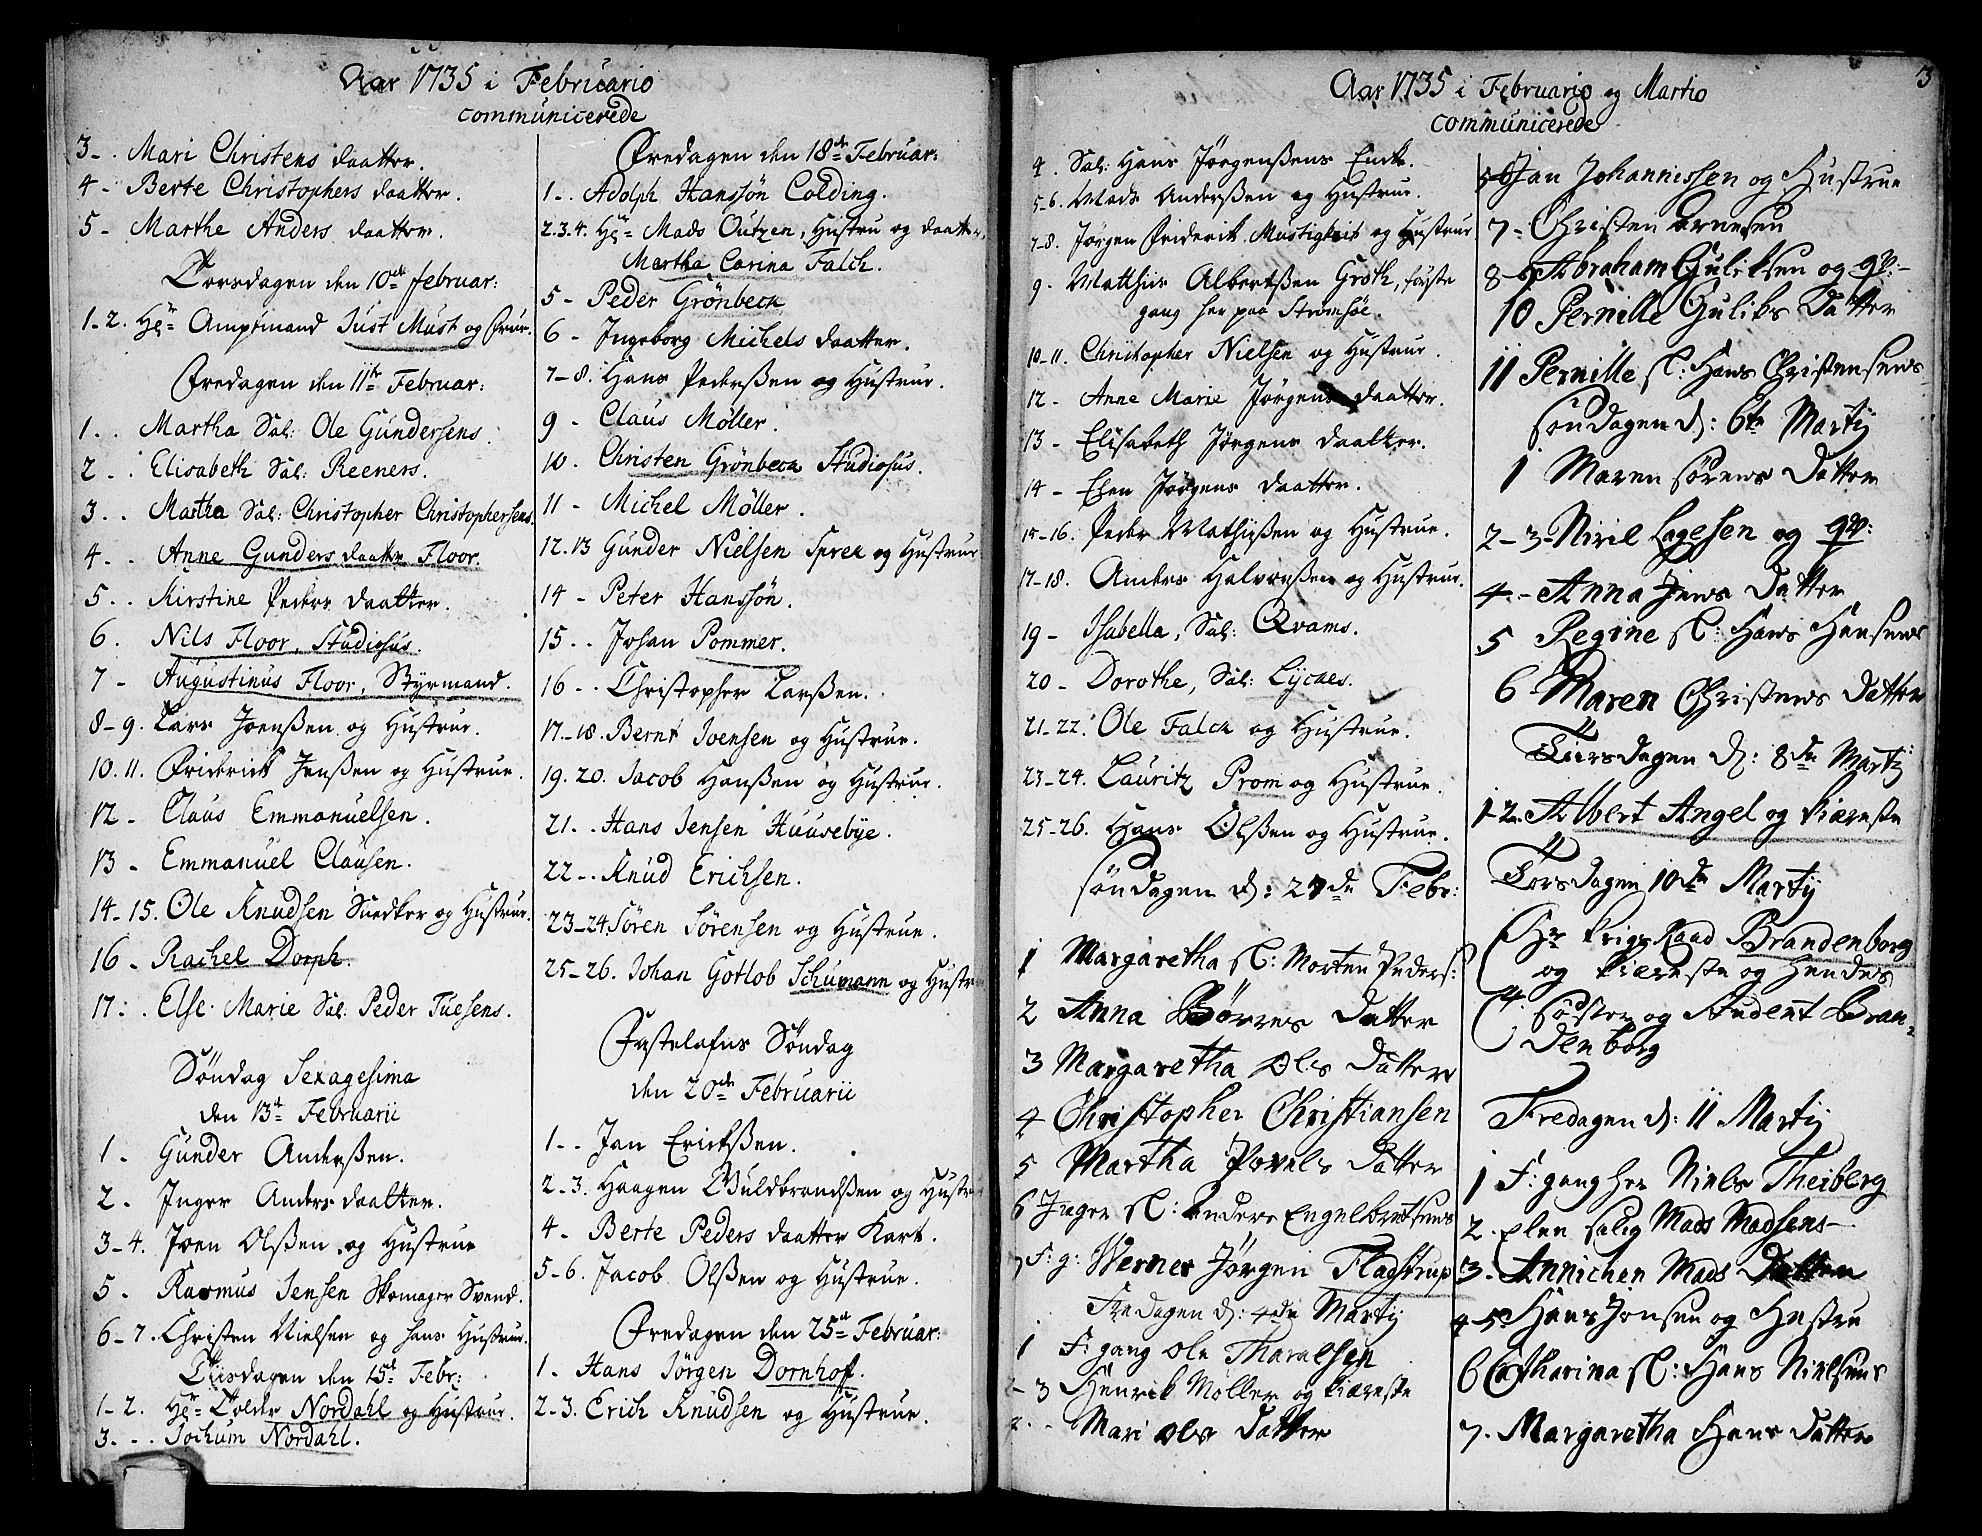 Aar 1735 i Februario
communicerede
3. Mari Christens daatter.
4 - Berte Christophers daatter.
5 - Marthe Anders daatter.
Torsdagen den 10de februar:
1-2. Hr Amptmand Just Must og Frue.
Fredagen den 11te Februar:
1.. Martha Sal: Ole Gundersens
2 .. Elisabeth Sal: Reeners.
3.. Martha Sal: Christopher Christophersens.
4.. Anne Gunders daatter Floor.
5.. Kirstine Peders daatter.
6. Nils Floor, Studiosus.
7 - Augustinus Floor, Styrmand.
8-9. Lars Joenßen og Hustrue.
10. 11. Friderich Jenßen og Hustrue.
12 - Claus Emmanuelsen.
13 - Emmanuel Clausen.
14-15. Ole Knudsen Snedker og Hustrue.
16 - Rachel Dorph.
17: . Else Marie Sal. Peder Tuesens.
Søndag Sexagesima
den 13de Februarii
1 - Gunder Anderßen.
2. Inger Anders daatter.
3-4. Joen Olßen og Hustrue
5. Rasmus Jensen Skomager Svend.
6-7. Christen Nielsen og hans Hustrue.
Tiisdagen den 15de Febr:
1-2. Hr Colder Nordahl og Hustrue.
3. .. Jochum Nordahl.
Fredagen den 18de Februar:
1-. Adolph Hanssøn Colding.
2.3.4. Hr Mads Outzen, Hustru og daatter,
Martha Carina Falch.
5 - Peder Grönbech
6 - Ingeborg Michels daatter.
7-8. Hans Pederßen og Hustrue.
9 - Claus Møller.
10. Christen Grönbech Studiosus.
11 - Michel Møller.
12. 13 Gunder Nielsen Sprek og Hustrue
14 - Peter Hanssøn.
15.. Johan Pommer.
16 -. Christopher Larßen.
17.-18. Bernt Ivensen og Hustrue.
19. 20. Jacob Hanßen og Hustrue.
21. . Hans Jensen Huusebye.
22 -. Knud Erichsen.
23-24. Sören Sörensen og Hustrue.
25-26. Johan Gotlob Schumann og Hustrue
Fastelafns Söndag
den 20de Februarii
1-. Jan Erichßen.
2-3. Haagen Guldbrandßen og Hustrue
4 - Berte Peders daatter Kart.
5-6. Jacob Olßen og Hustrue.
Fredagen den 25de Februar:
1 - Hans Jørgen Dornhof.
2-3. Erich Knudsen og Hustrue.
3
Aar 1735 i Februario og Martio
communicerede
4. Sal: Hans Jørgenßens Encke.
5-6. Mads Anderßen og Hustrue.
7-8. Jørgen Friderik Mustigkeit og Hustrue
9. Matthis Albertßen Groth, første
gang her paa Strømsöe.
10-11. Christopher Nielsen og Hustrue.
12 - Anne Marie Jørgens daatter.
13 - Elisabeth Jørgens daatter.
14 - Elen Jørgens daatter.
15-16. Peder Mathißen og Hustrue.
17-18. Anders Halvorßen og Hustrue.
19 - Isabella, Sal: Qvams.
20 - Dorothe, Sal: Lycaes.
21-22. Ole Falck og Hustrue.
23-24. Lauritz Prom og Hustrue.
25-26. Hans Olßen og Hustrue.
Søndagen d: 27de Febr:
1 Margaretha Sl: Morten Peders:
2 Anna Børres Datter
3 Margaretha Ols Datter
4 Christopher Christiansen
5 Martha Povels Datter
6 Inger Sl: Anders Engelbretsens
7 F: g: Werner Jørgen Fladstrup
Fredagen d: 4de Martij
1 F: gang Ole Tharalsen
2-3 Henrik Møller og Kiæreste
Mari Ols Datter
5-6 Jan Johannissen og Hustrue
7 - Christen Arnesen
8-9 Abraham Guliksen og qv:
10 Pernille Guliks Datter
11 Pernille Sl: Hans Christensens
Søndagen d: 6te Martij
1 Maren Sørens Datter
2-3 - Niril Lagesen og qv:
4 - Anna Jens Datter
5 Regine Sl: Hans Hansens
6 Maren Christens Datter
Tiersdagen d: 8de Martij
1-2. Albert Angel og Kiæreste
Torsdagen 10de Martij
Hr Krigs Raad Brandenborg
og Kiæreste og hendes
4. søster og Student Bran-
denborg
Fredagen d: 11 Martij
1 F: gang her Niels Theiberg
2. Elen salig Mads Madsens
3. Annichen Mads Datter
4-5 Hans Jonsen og Hustru
6 Catharina Sl: Hans Nielsens
7. Margaretha Hans Datter